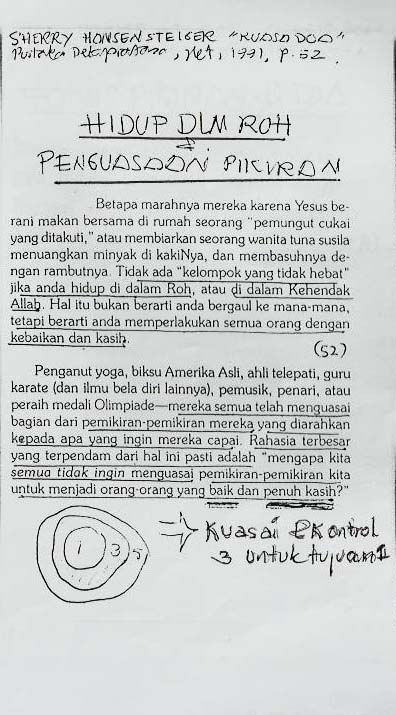 SHERRY HANSEN STEIGER "KUASA DOA"
Pustaka Delapratasa, 1991, p. 52.
HIDUP DLM ROH
&
PENGUASAAN PIKIRAN
Betapa marahnya mereka karena Yesus be-
rani makan bersama di rumah seorang "pemungut cukai
yang ditakuti," atau membiarkan seorang wanita tuna susila
menuangkan minyak di kakiNya, dan membasuhnya de-
ngan rambutnya. Tidak ada "kelompok yang tidak hebat"
jika anda hidup di dalam Roh, atau di dalam Kehendak
Allah. Hal itu bukan berarti anda bergaul ke mana-mana,
tetapi berarti anda memperlakukan semua orang dengan
kebaikan dan kasih.
(52)
Penganut yoga, biksu Amerika Asli, ahli telepati, guru
karate (dan ilmu bela diri lainnya), pemusik, penari, atau
peraih medali Olimpiade—mereka semua telah menguasai
bagian dari pemikiran-pemikiran mereka yang diarahkan
kepada apa yang ingin mereka capai. Rahasia terbesar
yang terpendam dari hal ini pasti adalah "mengapa kita
semua tidak ingin menguasai pemikiran-pemikiran kita
untuk menjadi orang-orang yang baik dan penuh kasih?"
1 3 5
Kuasai & kontrol
3 untuk tujuan 1